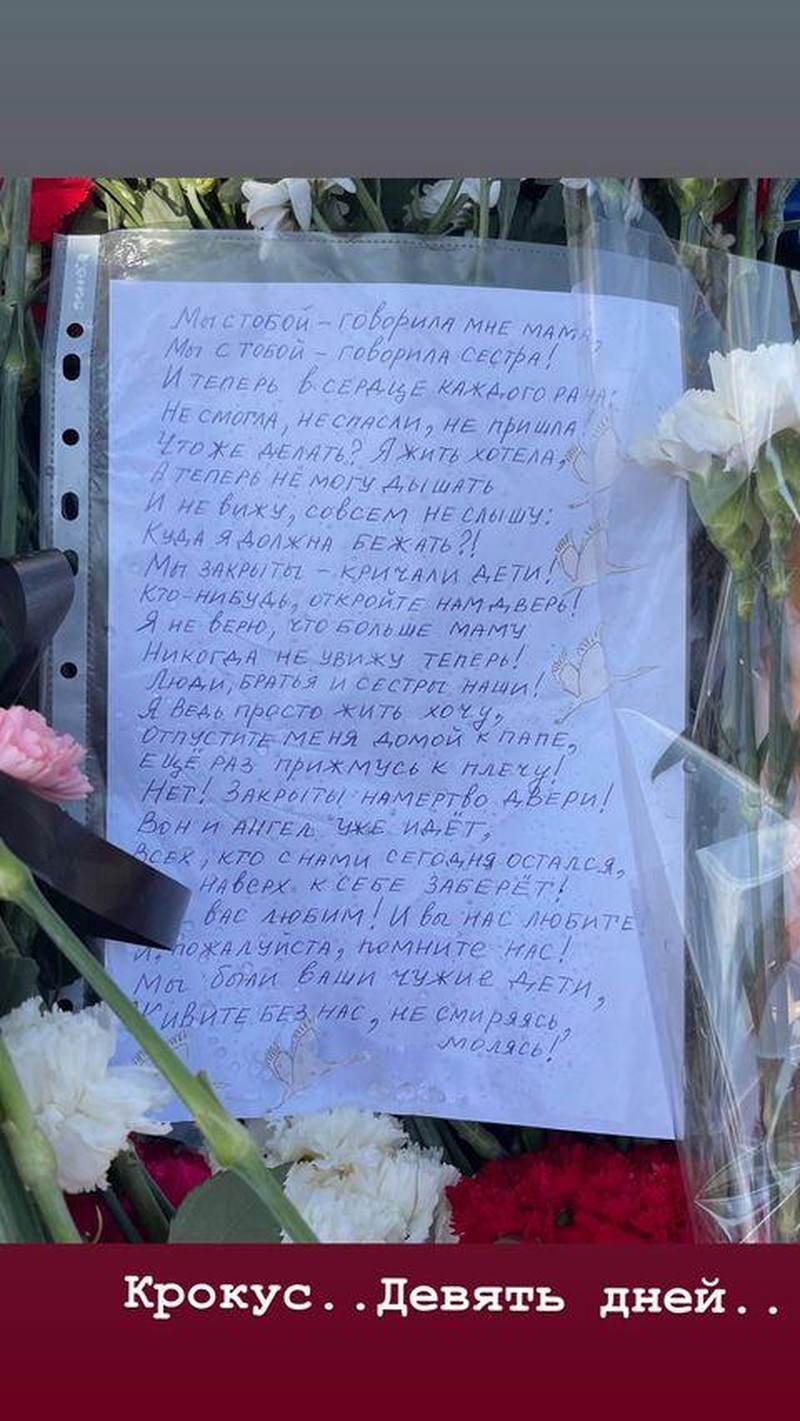 Мы с тобой – говорила мне мама,
Мы с тобой – говорила сестра!
И теперь в сердце каждого рана:
Не смогла, не спасли, не пришла!
Что же делать? Я жить хотела,
А теперь не могу дышать
И не вижу, совсем не слышу:
Куда я должна бежать?!
Мы закрыты – кричали дети!
Кто-нибудь, откройте нам дверь!
Я не верю, что больше маму
Никогда не увижу теперь!
Люди, братья и сестры наши!
Я ведь просто жить хочу,
Отпустите меня домой к папе,
Ещё раз прижмусь к плечу!
Нет! Закрыты намертво двери!
Вон и ангел уже идёт,
Всех, кто с нами сегодня остался,
наверх к себе заберёт!
вас любим! И вы нас любите
И, пожалуйста, помните нас!
Мы были ваши чужие дети,
Живите без нас, не смиряясь,
молясь!
Крокус..Девять дней..